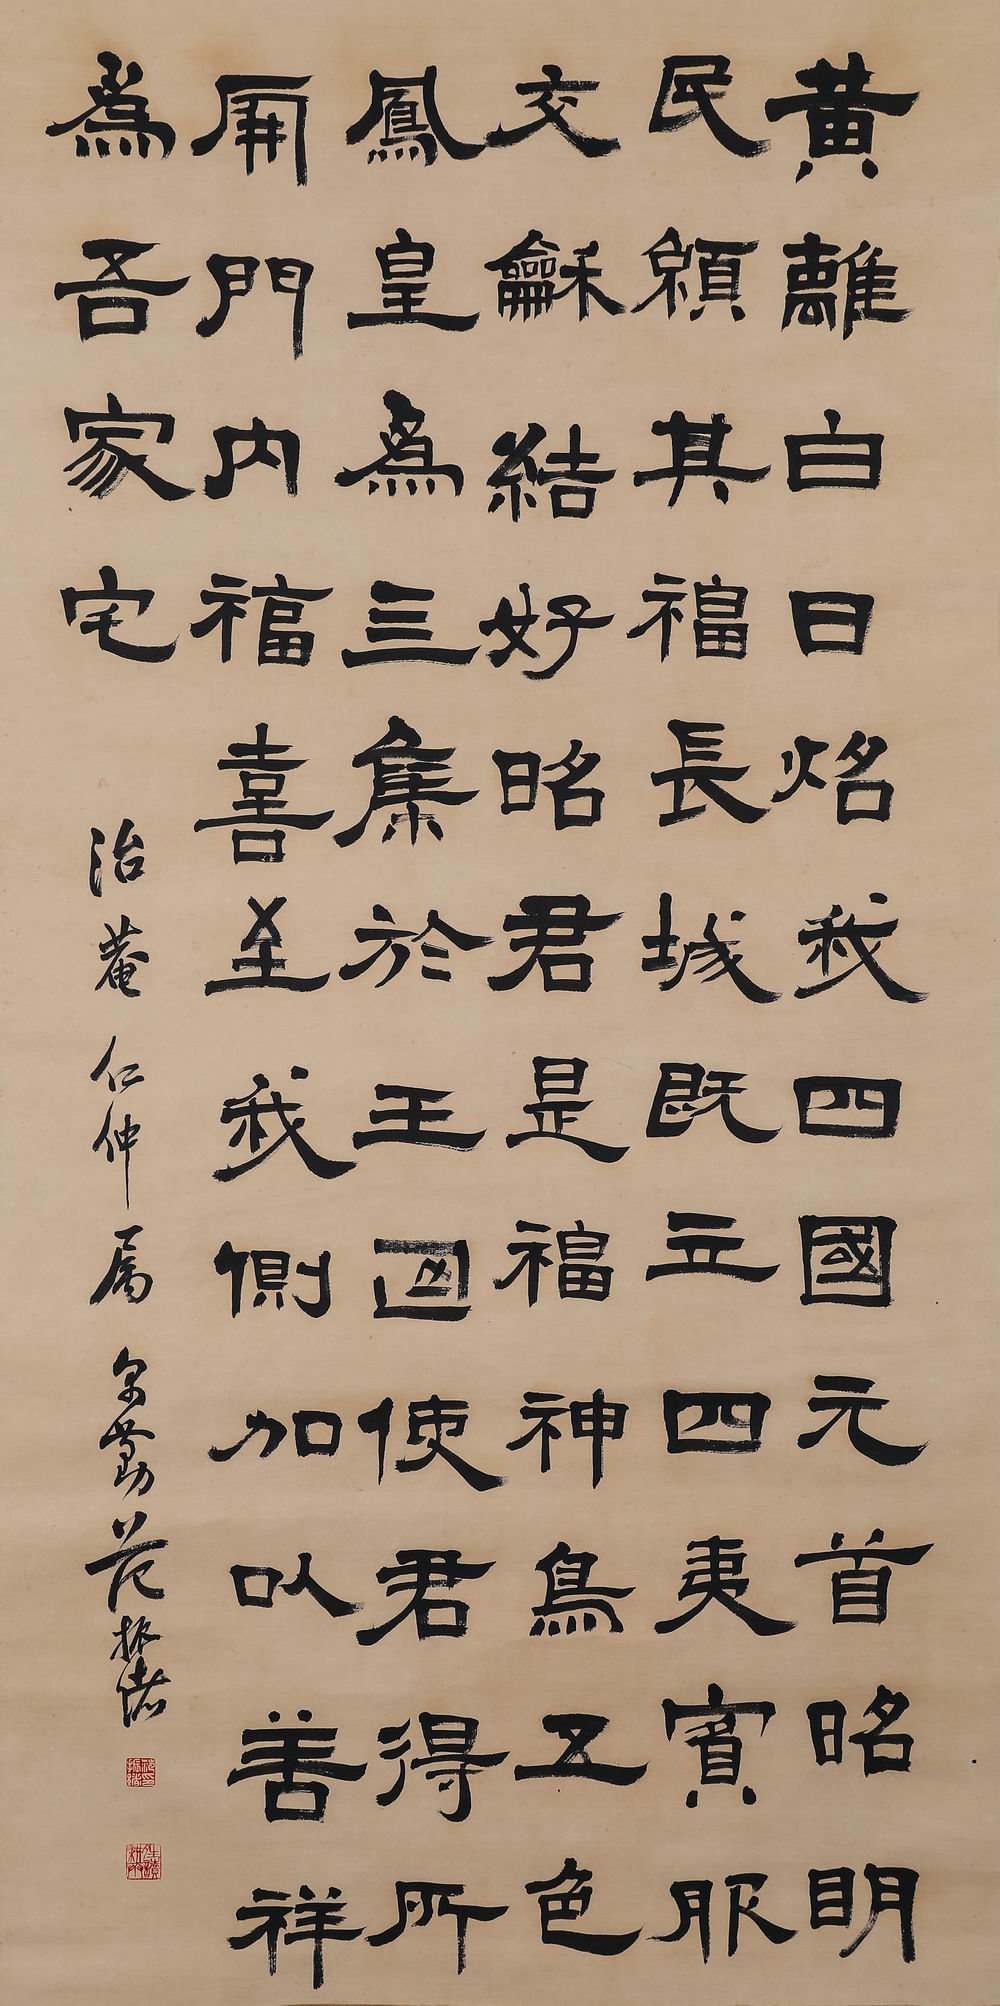 黃離白日炤我四國元首昭明
民賴其福長城既立四夷賓服
交龢結好昭君是福神鳥五色
鳳皇為三集於王使君得所
開門內福喜至我側加以善祥
為吾家宅
治菴仁仲屬 范振緒